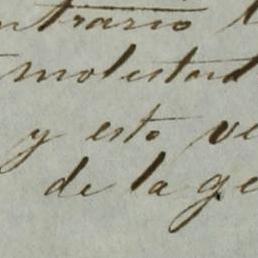 ntrario
molestad
y esto ve
de la ge